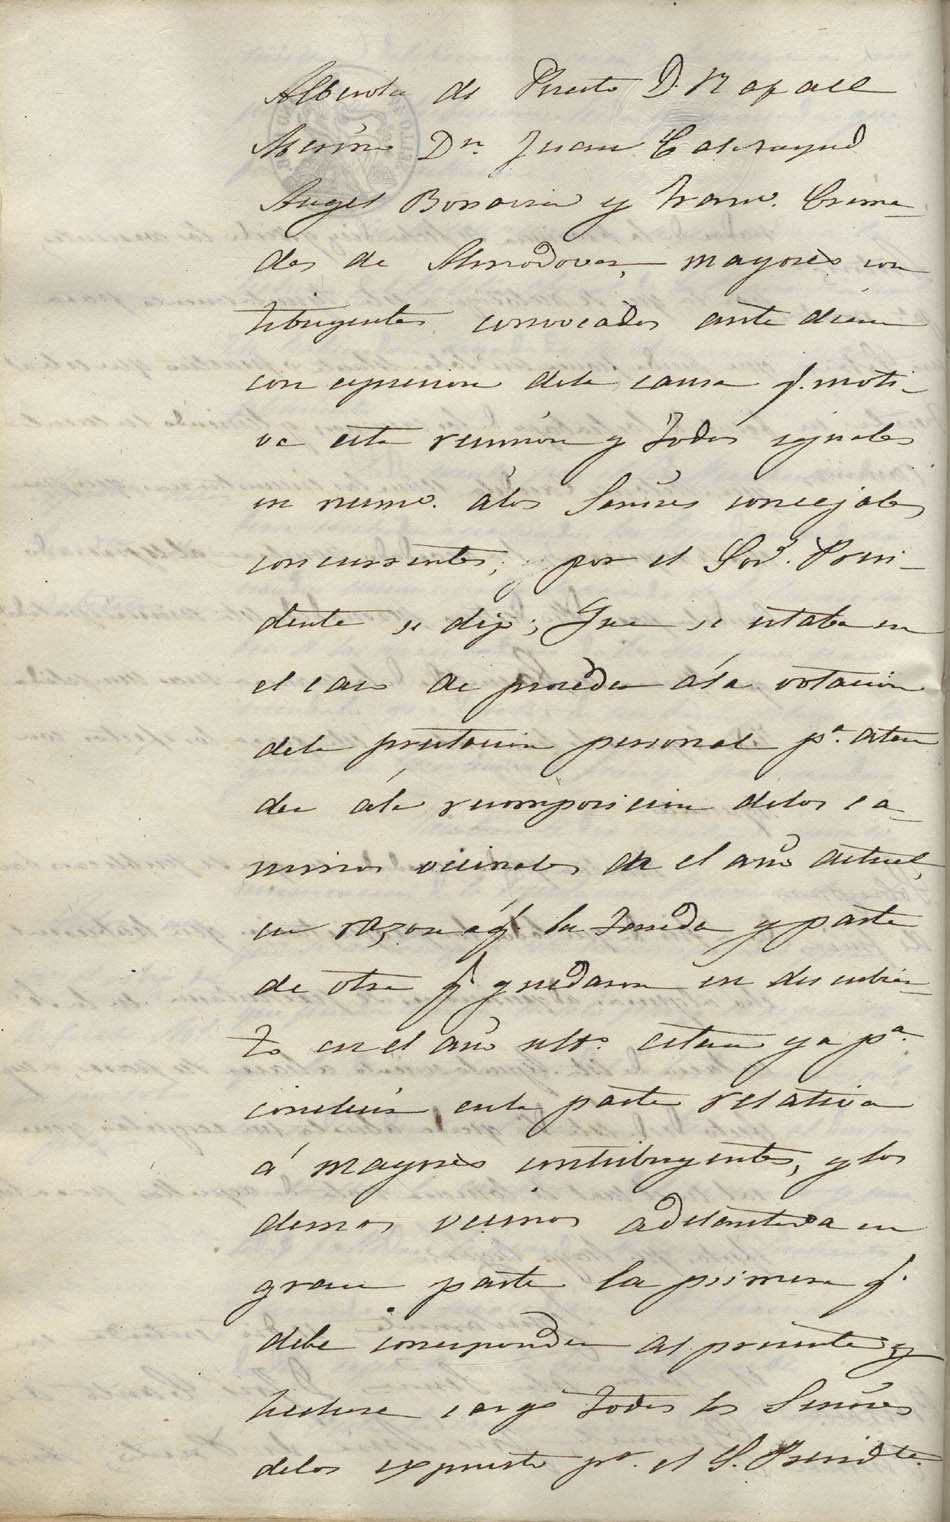 Alberola de Puerto D. Rafael
Merino Dn. Juan Calatayud
Angel Bonavia y Franco. Crema-
des de Almodovar, mayores con
tribuyentes convocados ante diem
con espresion dela causa q. moti-
va esta reunion y todos iguales
en numo. álos Señores concejales
concurrentes, por el Sor. Presi-
dente se dijo; Que se estaba en
el caso de proceder ála votacion
dela prestacion personal pa. aten
der ála recomposicion delos ca-
minos vecinales de el año actual,
en razon á q. la tanda y parte
de otra q. quedaron en descubier-
to en el año ulto. estan ya pa.
concluir en la parte relativa
á mayores contribuyentes, y los
demas vecinos adelantada en
gran parte la primera q.
debe corresponder al presente y
hechose cargo todos los Señores
delos expuesto pr. el S. Presidte.